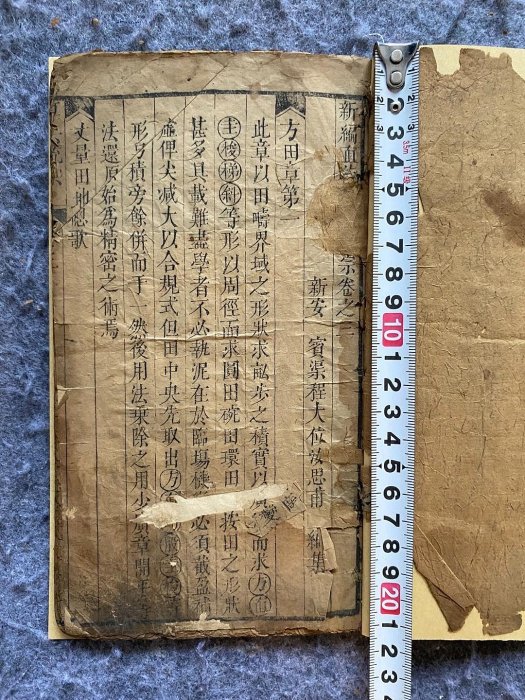 新編直 宗卷之三
新安 賓渠程大位汝思甫 編集
方田章第一
此章以田疇界域之形狀求畝步之積實以廣 而求方直
圭梭梯斜等形以周徑而求圓田碗田環田 按田之形狀
甚多具載難盡學者不必執泥在於臨塲機 必須截盈補
虛俾尖減大以合規式但田中央先取出方
形另積旁餘併而于 然後用法乘除之用少廣章開
法還原始為精密之術焉
丈量田地總歌
2
3
4
5
6
7
8
9
10
1
2
3
4
5
6
7
8
9
20
1
2
3